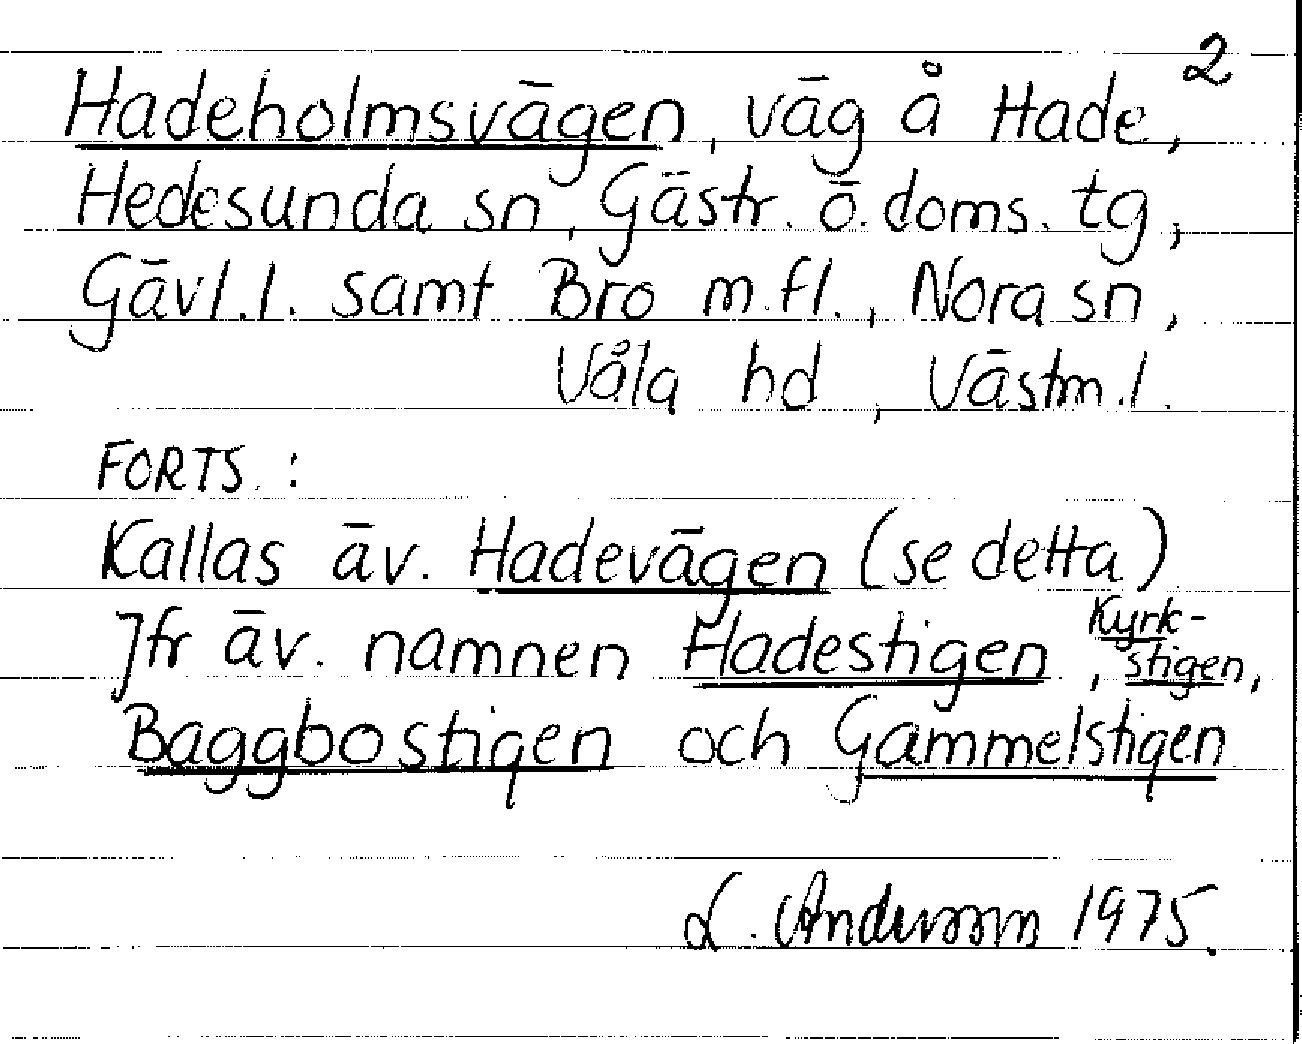 2
Hadeholmsvägen, väg å Hade,
Hedesunda sn, Gästr. ö. doms. tg,
Gävl.l. samt Bro m.fl., Nora sn,
Våla hd, Västm.l.
FORTS.:
Kallas äv. Hadevägen (se detta)
Jfr äv. namnen Hadestigen, Kyrk-
stigen,
Baggbostigen och Gammelstigen
L. Andersson 1975.